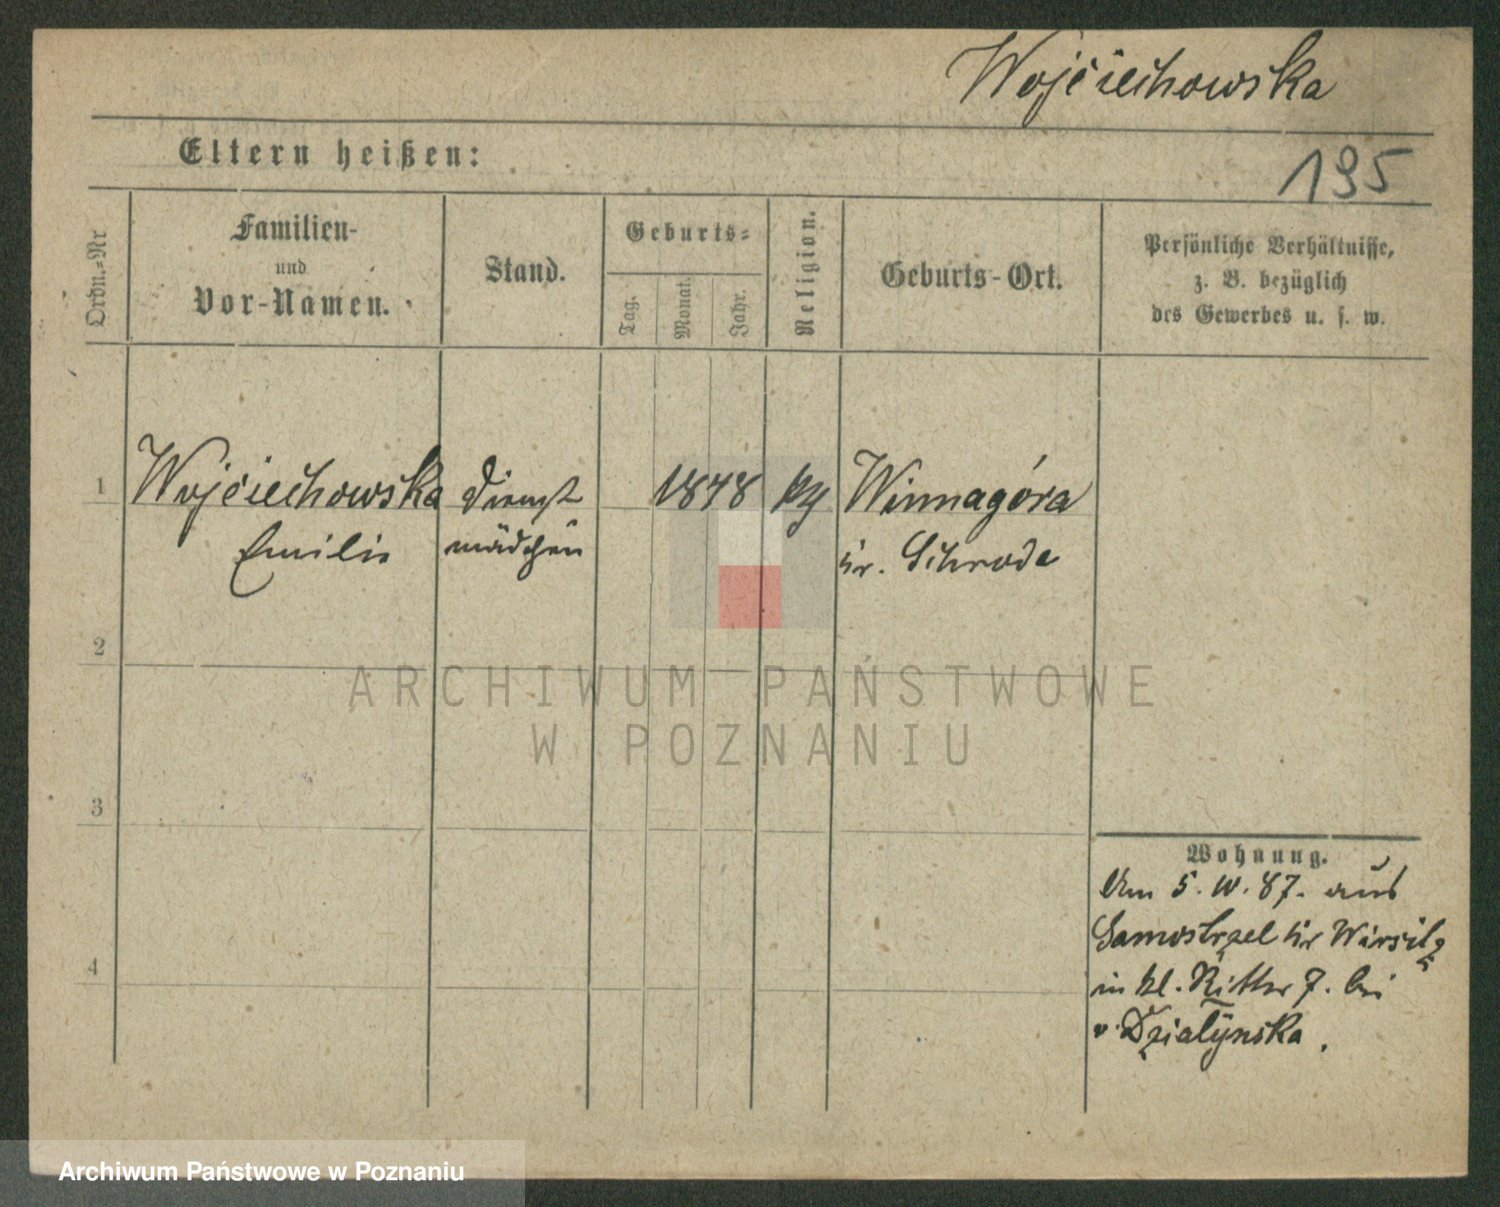 Wojciechowska
Eltern heißen:
195
Ordn.-Nr
Familien-
und
Vor-Namen.
Stand.
Geburts-
Tag.
Monat.
Jahr.
Religion.
Geburts-Ort.
Persönliche Verhältnisse,
z. B. bezüglich
des Gewerbes u. s. w.
1
Wojciechowska
Emilie
Dienst
mädchen
1878
Winnagóra
Kr. Schroda
2
3
4
Wohnung.
Am 5. 10. 87. aus
Samostrzel Kr Wirsitz
in kl. Ritter 7. bei
v. Dzialynska.
ARCHIWUM PAŃSTWOWE
W POZNANIU
Archiwum Państwowe w Poznaniu